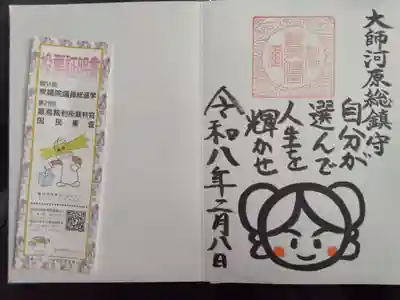 投票証明書
第51回
衆議院議員総選挙
第27回
最高裁判所裁判官
国民審査
大師河原総鎮守
自分が
選んで
人生を
輝かせ
令和八年二月八日